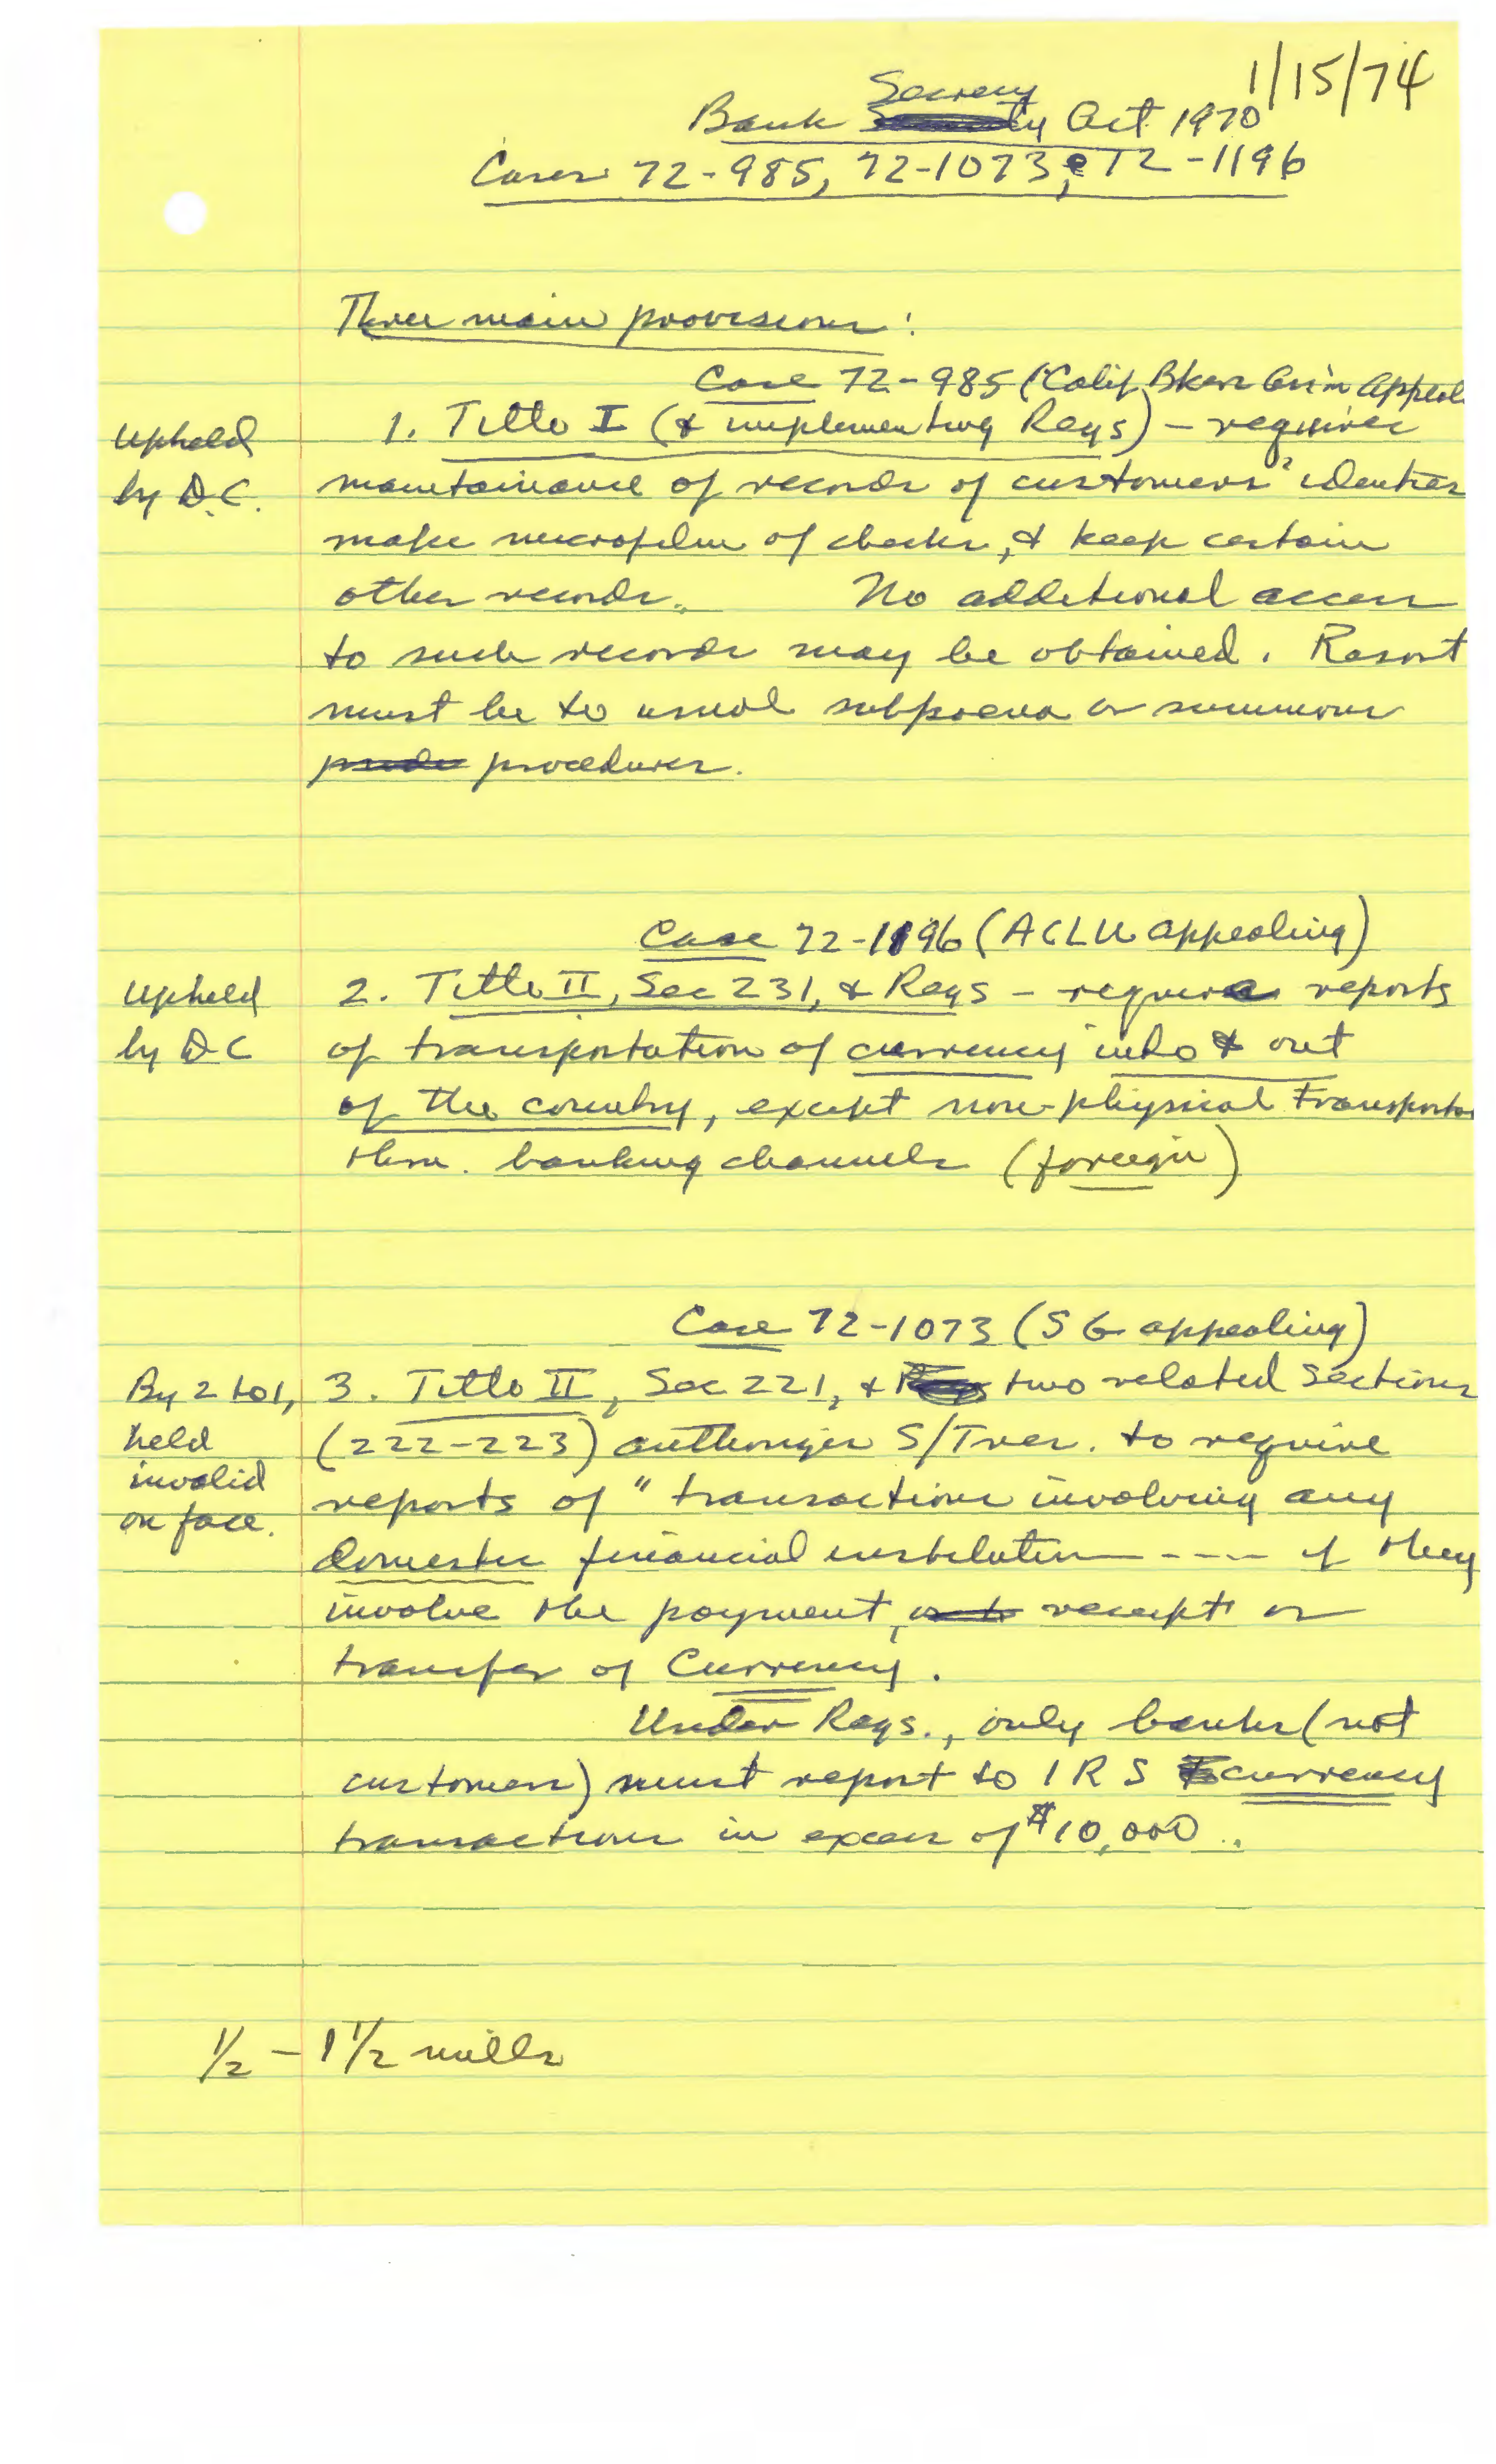 1/15/74
Bank Secrecy Act 1970
Cases 72-985, 72-1073, & 72-1196
Three main provisions:
Case 72-985 (Calif Bkers Ass'n Appeal
Upheld by D.C.
1. Title I (& implementing Regs) - requires
maintainance of records of customers' identies
make microfilm of checks, & keep certain
other records. No additional access
to such records may be obtained. Resort
must be to usual subpoena or summons
procedures.
Case 72-1196 (ACLU appealing)
Upheld by DC
2. Title II, Sec 231, & Regs - require reports
of transportation of currency into & out
of the country, except non-physical transporta
thru. banking channels (foreign)
Case 72-1073 (SG appealing)
By 2 to 1, held invalid on face.
3. Title II, Sec 221, & two related sections
(222-223) authorizes S/Tres. to require
reports of "transactions involving any
domestic financial institution ---- if they
involve the payment, receipt or
transfer of Currency.
Under Regs., only banks (not
customers) must report to IRS currency
transactions in excess of $10,000.
1/2 - 1 1/2 mills